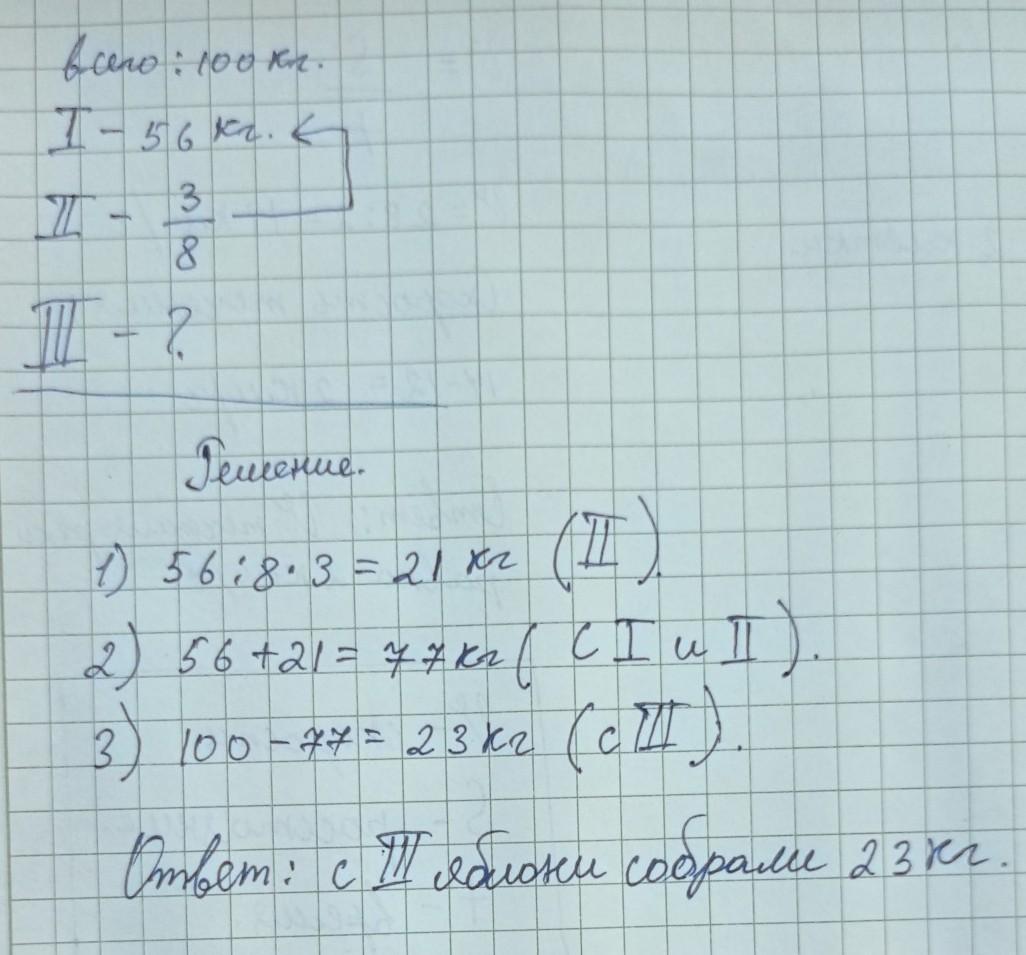 всего : 100 кг.
I - 56 кг.
II - 3/8
III - ?
Решение.
1) 56 : 8 · 3 = 21 кг (II).
2) 56 + 21 = 77 кг ( с I и II ).
3) 100 - 77 = 23 кг (с III ).
Ответ: с III яблони собрали 23 кг.